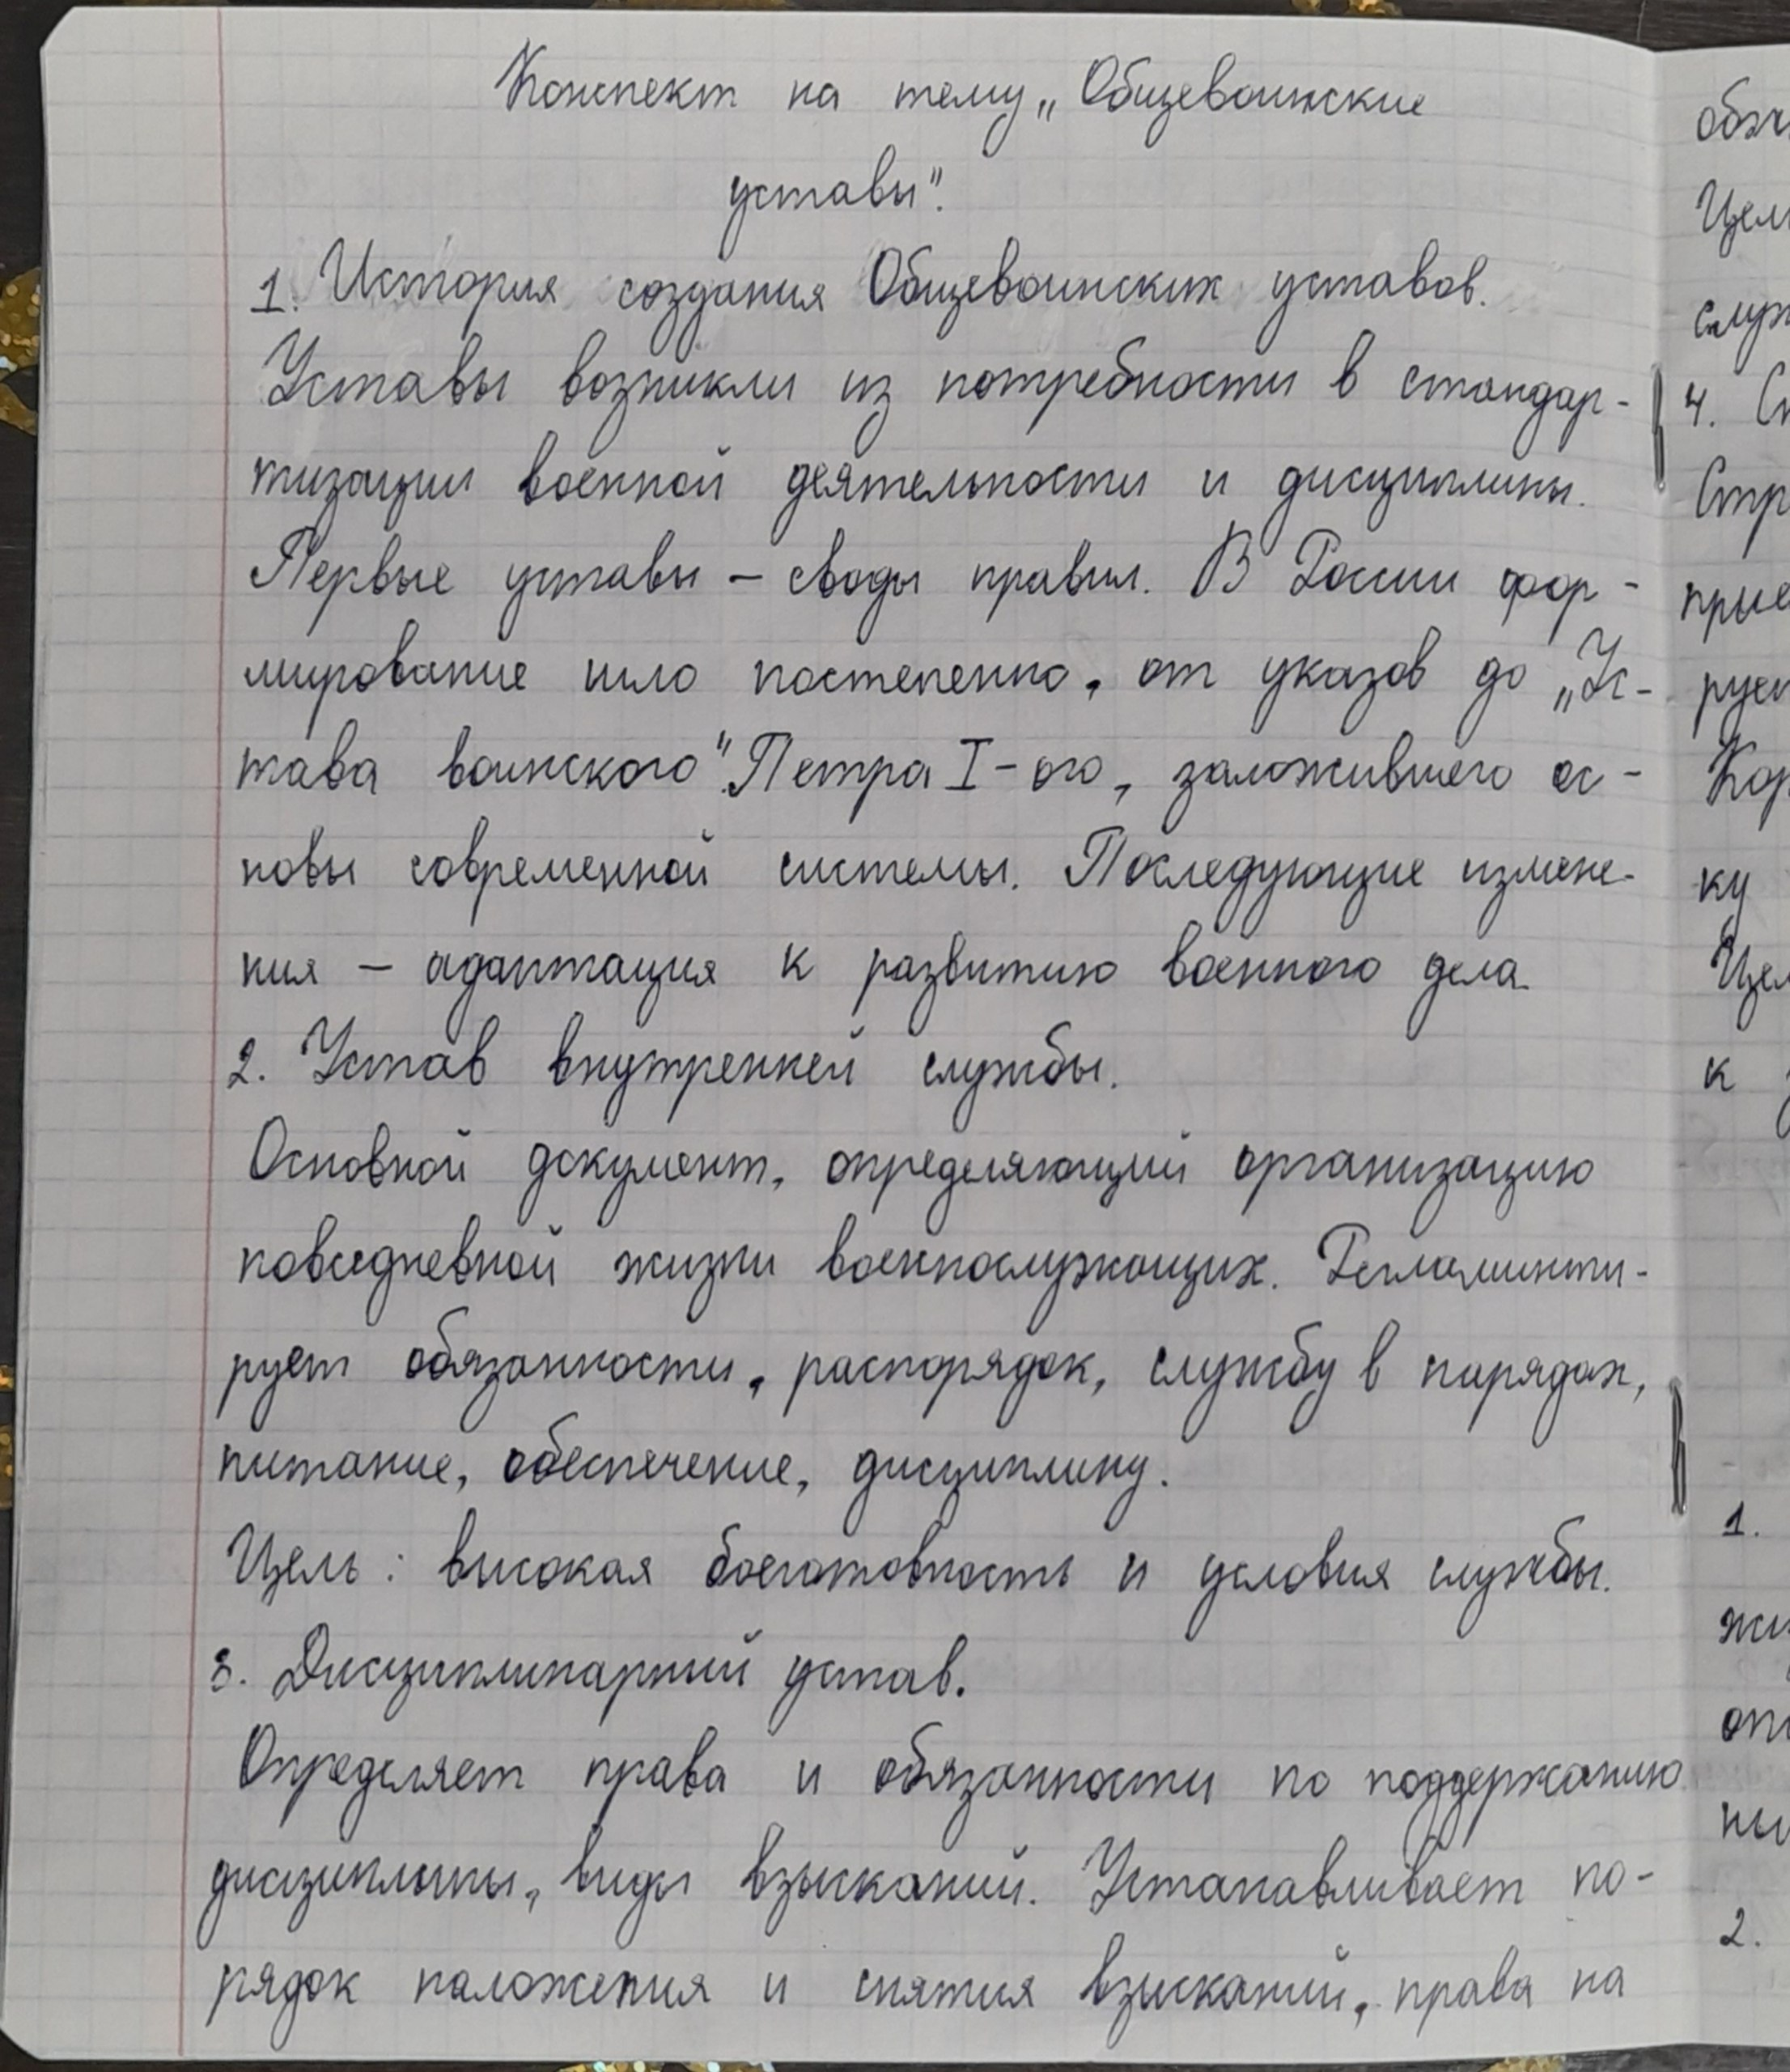 Конспект на тему „Общевоинские
уставы".
1. История создания Общевоинских уставов.
Уставы возникли из потребности в стандар-
тизации военной деятельности и дисциплины.
Первые уставы – своды правил. В России фор-
мирование шло постепенно, от указов до „Ус-
тава воинского" Петра I-ого, заложившего ос-
новы современной системы. Последующие измене-
ния – адаптация к развитию военного дела.
2. Устав внутренней службы.
Основной документ, определяющий организацию
повседневной жизни военнослужащих. Регламинти-
рует обязанности, распорядок, службу в нарядах,
питание, обеспечение, дисциплину.
Цель: высокая боеготовность и условия службы.
3. Дисциплинарный устав.
Определяет права и обязанности по поддержанию
дисциплины, виды взысканий. Устанавливает по-
рядок наложения и снятия взысканий, права на
4.
ку
к
1.
2.